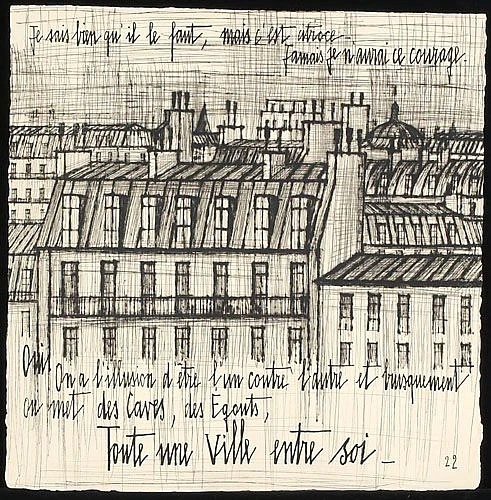 Je sais bien qu'il le faut, mais c'est atroce_
Jamais je n'aurai ce courage.
Oui
On a l'illusion d'être l'un contre l'autre et brusquement
on met des Caves, des Egouts,
Toute une Ville entre soi_
22